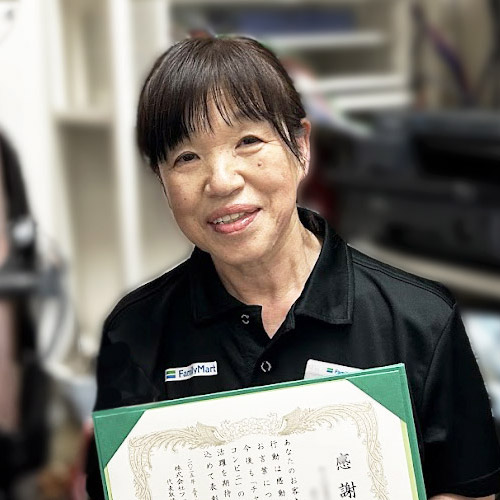 FamilyMart
感謝
あなたのお客
行動は感動
お言葉につ
今後も「チャ
コンビニの
活躍を期待
込めて表彰
株式会社フ
代表取